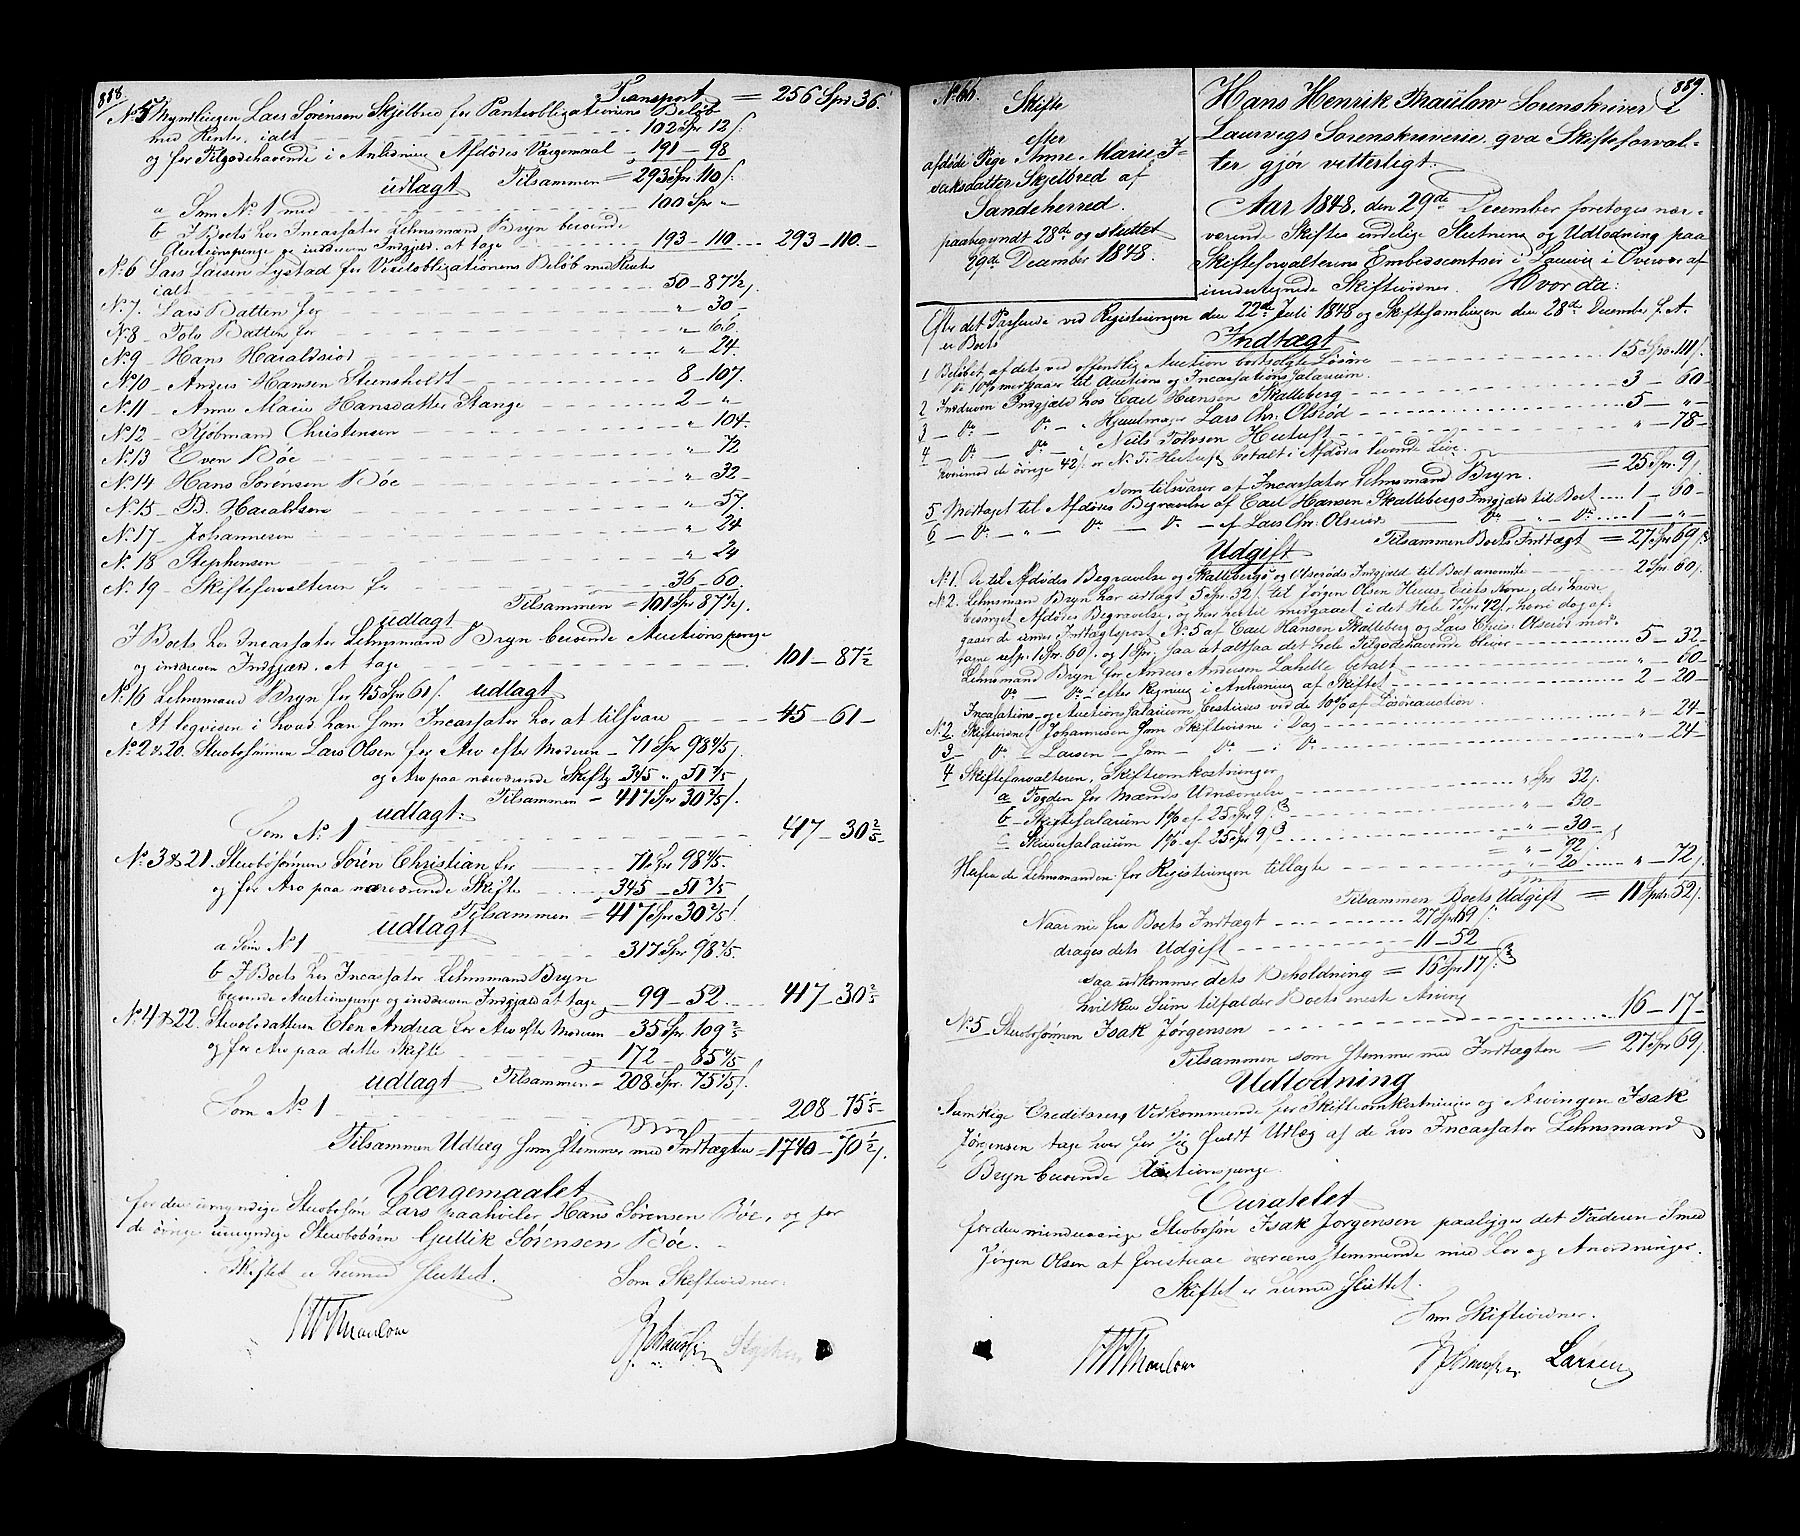 888.
Transport = 256 Spd 36.
No 5 Myndlingen Lars Sørensen Skjelbred for Panteobligationens Beløb
med Renter, ialt 102 Spr 12/.
og for Tilgodehavende i Anledning Afdødes Værgemaal 191 – 98
Tilsammen = 293 Spr 110/.
udlagt
a Som No 1 med 100 Spr „
b I Boets hos Incassator Lehnsmand Bryn beroende
Auctionspenge og inddreven Indgjeld at tage 193 – 110 293 – 110 –
No 6 Lars Larsen Lystad for Viseløbligationens Beløb med Renter
ialt 50 – 87 1/2/.
No 7. Lars Batten for „ 30 –
No 8 – Tolv Batten for „ 66
No 9 – Hans Haraldsrød „ 24.
No 10 – Anders Hansen Steensholdt 8 – 107.
No 11 – Anne Marie Hansdatter Stange 2 – „
No 12 – Kjøbmand Christensen „ 104.
No 13 Even Bøe „ 72
No 14 Hans Sørensen Bøe „ 32 –
No 15 – B. Haraldsen „ 57.
No 17 – Johannesen „ 24
No 18 Stephensen „ 24
No 19 – Skifteforvalteren for 36 – 60.
Tilsammen = 101 Spr 87 1/2/.
udlagt
I Boets hos Incassator Lehnsmand Bryn beroende Auctionspenge
og inddreven Indgjæld at tage 101 – 87 1/2
No 16 Lehnsmand Bryn for 45 Spr 61/. udlagt
At leqvidere i hvad han som Incassator har at tilsvare 45 – 61 –
No 2 & 20. Sterbosønnen Lars Olsen for Arv efter Moderen – 71 Spr 98 4/5/.
og Arv paa nærværende Skifte 345 „ 51 3/5
Tilsammen – 417 Spr 30 2/5/.
udlagt:
Som No 1 417 – 30 2/5
No 3 & 21. Sterbosønnen Søren Christian for 71 Spr 98 4/5.
og for Arv paa nærværende Skifte 345 – 51 3/5
Tilsammen = 417 Spr 30 2/5/.
udlagt
a Som No 1 317 Spr 98 2/5.
b I Boets hos Incassator Lehnsmand Bryn
beroende Auctionspenge og inddreven Indgjeld at tage 99 – 52 417 – 30 2/5
No 4 & 22. Sterbodatteren Elen Andrea for Arv efter Moderen – 35 Spr 109 2/5
og for Arv paa dette Skifte 172 – 85 4/5
Tilsammen – 208 Spr. 75 1/5/.
udlagt
Som No 1 208 – 75 1/5 –
Tilsammen Udlæg som stemmer med Indtægten – 1740 – 70 1/2/.
Værgemaalet
for den umyndige Sterbosøn Lars paahviler Hans Sørensen Bøe, og for
de øvrige umyndige Sterbobørn Gullik Sørensen Bøe. –
Skiftet er hermed sluttet.
Som Skiftevidner:
HHThraulow
889.
No 66.
Skifte
efter
afdøde Pige Anne Marie I-
saksdatter Skjelbred af
Sandeherred.
paabegyndt 28de og sluttet
29de December 1848.
Hans Henrik Thraulow Sorenskriver i
Laurvigs Sorenskriverie. qva Skifteforval-
ter gjør vitterligt:
Aar 1848, den 29de December foretoges nær-
værende Skiftes endelige Slutning og Udlodning paa
Skifteforvalterens Embedscontoir i Laurvig i Overvær af
undertegnede Skiftevidner. Hvor da:
Efter det Passerede ved Registreringen den 22de Juli 1848 og Skiftesamlingen den 28de December s. A.
er Boets
Indtægt
1 Beløbet af dets ved offentlig Auction bortsolgte Løsøre 15 Spr. 111/.
De 10% medgaar til Auctions og Incassations Salarium.
2 Inddreven Indgjæld hos Carl Hansen Skalleberg 3 – 60
3 – Do – Do – „ Hjuulmager Lars Chr: Olsrød 5 – „ –
4 – Do – Do – „ Niels Tolvsen Hotuft „ – 78 –
hvorimod de øvrige 42/. er N. T. Hotuft betalt i Afdødes levende Live.
= 25 Spr. 9/.
som tilsvares af Incassator Lehnsmand Bryn.
5 Modtaget til Afdødes Begravelse af Carl Hansen Skallebergs Indgjæld til Boet 1 – 60 –
6 – Do – „ – Do – Do – af Lars Chr: Olsrød Do „ Do 1 – „ –
Tilsammen Boets Indtægt = 27 Spr 69/.
Udgift
No 1. De til Afdødes Begravelse og Skallebergs og Olsrøds Indgjæld til Boet anvendte 2 Spr 60/.
No 2. Lehnsmand Bryn har udlagt 5 Spr. 32/. til Jørgen Olsen Huus Eiets Kone, der havde
besørget Afdødes Begravelse, og har hertil medgaaet i det Hele 7 Spr 42/. hvori dog af-
gaaer de under Indtægtspost No 5 af Carl Hansen Skalleberg og Lars Chris: Olsrød mod-
tagne resp. 1 Spr. 60/. og 1 Spr, saa at altsaa det hele Tilgodehavende bliver 5 – 32 –
Lehnsmand Bryn for Anders Andersen Lahelle betalt „ – 60 –
Do – Do – efter Regning i Anledning af Skiftet 2 – 20 –
Incassations- og Auctions Salarium bestrides ved de 10% af Løsøreauction.
No 2. Skiftevidnet Johannesen som Skiftevidne i Dag „ – 24 –
3 – Do – Larsen – som – Do – i Do „ – 24 –
4 Skifteforvalteren, Skifteomkostninger
a Fogden for Mænds Udnævnelse „ Spr 32/.
b – Skiftesalarium 1% af 25 Spr 9/. „ – 30 –
c – Skriversalarium 1% af 25 Spr 9/. „ – 30 –
= „ – 92/.
Herfra de Lehnsmanden for Registreringen tillagte „ – 20 „ – 72/.
Tilsammen Boets Udgift = 11 Spd. 52/.
Naar nu fra Boets Indtægt 27 Spr 69/.
drages dets Udgift 11 – 52
saa udkommer dets Beholdning = 16 Spr 17/.
hvilken Sum tilfalder Boets eneste Arving
No 5 – Sterbosønnen Isak Jørgensen 16 – 17 –
Tilsammen som stemmer med Indtægten = 27 Spr 69/.
Udlodning
Samtlige Creditorer, Vedkommende for Skifteomkostninger og Arvingen Isak
Jørgensen tage hver for sig fuldt Udlæg af de hos Incassator Lehnsmand
Bryn beroende Auctionspenge.
Curatelet
for den mindreaarige Sterbosøn Isak Jørgensen paaligger det Faderen Smed
Jørgen Olsen at forestaae overeensstemmende med Lov og Anordninger.
Skiftet er hermed sluttet.
Som Skiftevidner.
HHThraulow
Larsen